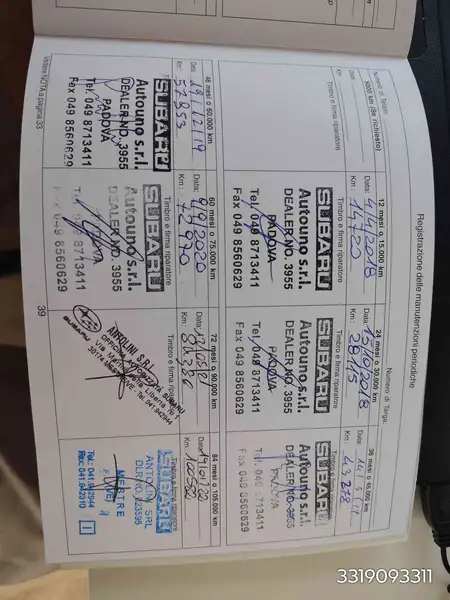 Registrazione delle manutenzioni periodiche
Numero di Telaio:
Numero di Targa:
5000 km (Se richiesto)
Data:
Km:
Timbro e firma riparatore
12 mesi o 15.000 km
Data: 4/4/2018
Km: 14720
Timbro e firma riparatore
SUBARU
Autouno s.r.l.
DEALER NO. 3955
PADOVA
Tel. 049 8713411
Fax 049 8560629
24 mesi o 30.000 km
Data: 15/10/2018
Km: 28115
Timbro e firma riparatore
SUBARU
Autouno s.r.l.
DEALER NO. 3955
PADOVA
Tel. 049 8713411
Fax 049 8560629
36 mesi o 45.000 km
Data:
Km:
Timbro e firma riparatore
SUBARU
Autouno s.r.l.
DEALER NO. 3955
PADOVA
Tel. 049 8713411
Fax 049 8560629
48 mesi o 60.000 km
Data: 19/12/19
Km: 57853
Timbro e firma riparatore
SUBARU
Autouno s.r.l.
DEALER NO. 3955
PADOVA
Tel. 049 8713411
Fax 049 8560629
60 mesi o 75.000 km
Data: 9/9/2020
Km:
Timbro e firma riparatore
SUBARU
Autouno s.r.l.
DEALER NO. 3955
PADOVA
Tel. 049 8713411
Fax 049 8560629
72 mesi o 90.000 km
Data:
Km:
Timbro e firma riparatore
ANTOLINI SRL
SUBARU
Tel. 041 942944
84 mesi o 105.000 km
Data:
Km: 100580
Timbro e firma riparatore
SUBARU
ANTOLINI SRL
MESTRE
Tel.: 041.942944
Fax: 041.942910
vedere NOTA a pagina 33
39
3319093311